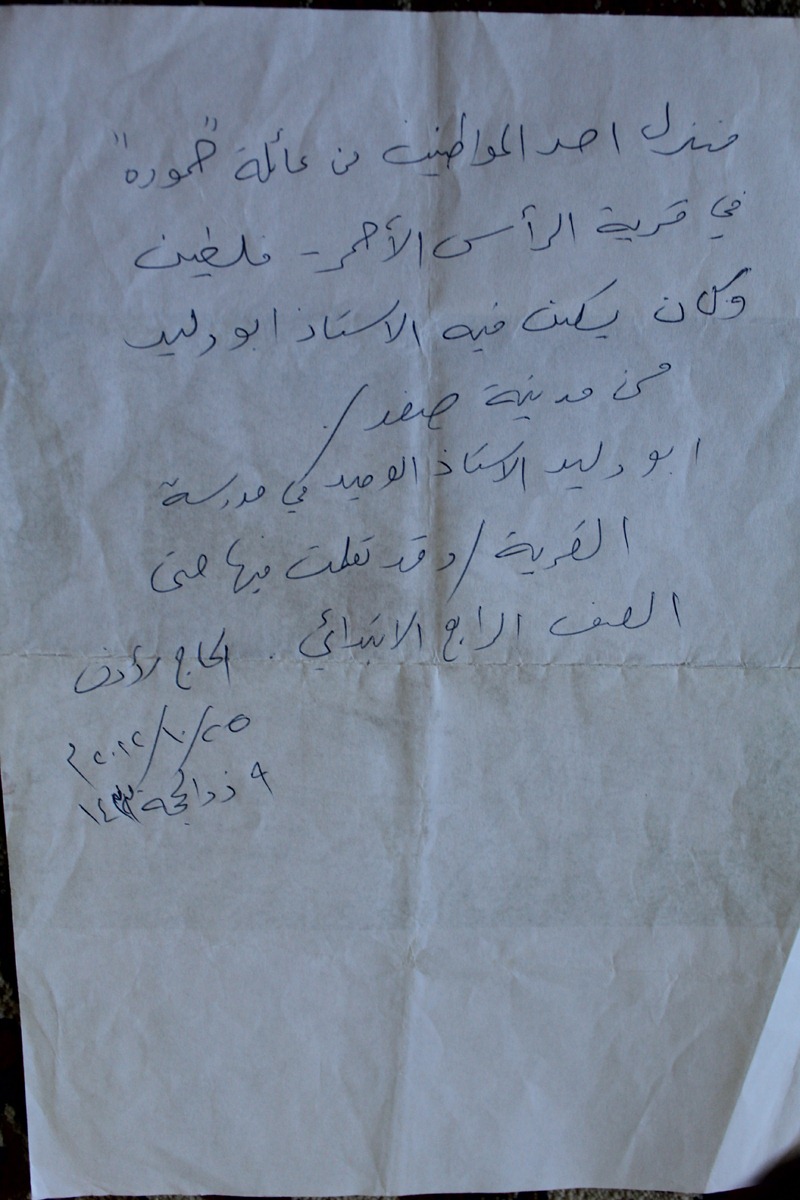 منزل احد المواطنين من عائلة "حموده"
في قرية الرأس الأحمر - فلسطين
وكان يسكن فيه الاستاذ ابو وليد
من مدينة صفد /.
ابو وليد الاستاذ الوحيد في مدرسة
القرية / وقد تعلمت فيها حتى
الصف الرابع الابتدائي . الحاج
٢٥/١٠/٢٠١٢ م
٩ ذو الحجة